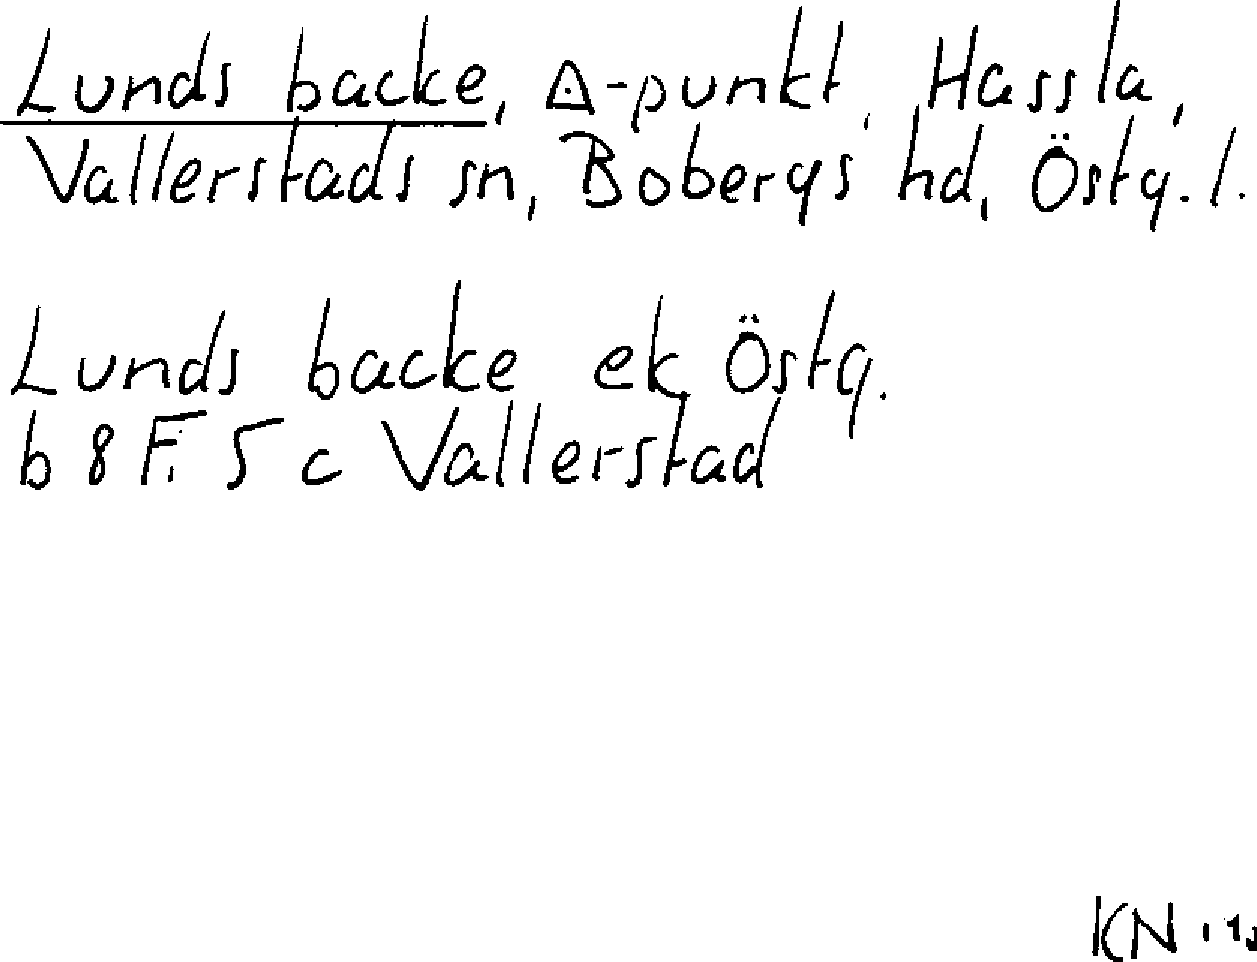 Lunds backe, △-punkt, Hassla,
Vallerstads sn, Bobergs hd, Östg. l.
Lunds backe ek Östg.
b 8 F. 5 c Vallerstad
KN